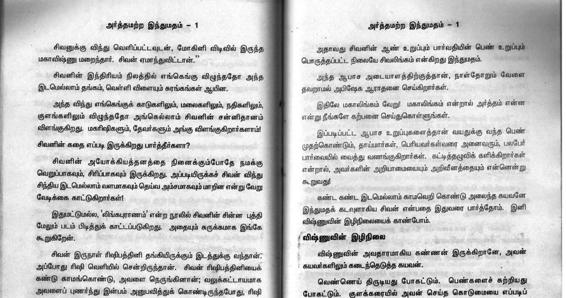 அர்த்தமற்ற இந்துமதம் – 1
சிவனுக்கு விந்து வெளிப்பட்டவுடன், மோகினி வடிவில் இருந்த
மகாவிஷ்ணு மறைந்தார். சிவன் ஏமாந்துவிட்டான்."
சிவனின் இந்திரியம் நிலத்தில் எங்கெங்கு விழுந்ததோ அந்த
இடமெல்லாம் தங்கம், வெள்ளி விளையும் சுரங்கங்கள் ஆயின.
அந்த விந்து எங்கெங்குக் காடுகளிலும், மலைகளிலும், நதிகளிலும்,
குளங்களிலும் விழுந்ததோ அங்கெல்லாம் சிவனின் சன்னிதானம்
விளங்குகிறது. மகரிஷிகளும், தேவர்களும் அங்கு விளங்குகிறார்களாம்!
சிவனின் கதை எப்படி இருக்கிறது பார்த்தீர்களா?
சிவனின் அயோக்கியத்தனத்தை நினைக்கும்போதே நமக்கு
வெறுப்பாகவும், சிரிப்பாகவும் இருக்கிறது. அப்படியிருக்கச் சிவன் விந்து
சிந்திய இடமெல்லாம் வளமாகவும் தெய்வ அம்சமாகவும் மாறின என்று வேறு
வேடிக்கை காட்டுகிறார்கள்!
இதுமட்டுமல்ல, 'லிங்கபுராணம்' என்ற நூலில் சிவனின் சின்ன புத்தி
மேலும் படம் பிடித்துக் காட்டப்படுகிறது. அதையும் சுருக்கமாக இங்கே
கூறுகிறேன்.
சிவன் இருநாள் ரிஷிபத்தினி தங்கியிருக்கும் இடத்துக்கு வந்தான்.
அப்போது ரிஷி வெளியில் சென்றிருந்தான். சிவன் ரிஷிபத்தினியைக்
கண்டு காமங்கொண்டு, அவளை நெருங்கினான்; வலுக்கட்டாயமாக
அவளைப் புணர்ந்து இன்பம் அனுபவித்துக் கொண்டிருந்தபோது, ரிஷி
அர்த்தமற்ற இந்துமதம் – 1
அதாவது சிவனின் ஆண் உறுப்பும் பார்வதியின் பெண் உறுப்பும்
பொருத்தப்பட்ட நிலையே சிவலிங்கம் என்கிறது இந்துமதம்.
அந்த ஆபாச அடையாளத்திற்குத்தான், நாள்தோறும் வேளை
தவறாமல் அபிஷேக ஆராதனை செய்கிறார்கள்.
இதிலே மகாலிங்கம் வேறு! மகாலிங்கம் என்றால் அர்த்தம் என்ன
என்று நீங்களே கற்பனை செய்துகொள்ளுங்கள்.
இப்படிப்பட்ட ஆபாச உறுப்புகளைத்தான் வயதுக்கு வந்த பெண்
முதற்கொண்டும், தாய்மார்கள், பெரியவர்கள்வரை அனைவரும், பலபேர்
பார்வையில் வைத்து வணங்குகிறார்கள். சுட்டித்தழுவிக் களிக்கிறார்கள்
என்றால், அவர்களின் அறியாமையையும் அறிவீனத்தையும் என்னென்று
கூறுவது!
கண்ட கண்ட இடமெல்லாம் காமவெறி கொண்டு அலைந்த கயவனே
இந்துமதக் கடவுளாகிய சிவன் என்பதை இதுவரை பார்த்தோம். இனி
விஷ்ணுவின் இழிநிலையைக் காண்போம்.
விஷ்ணுவின் இழிநிலை
விஷ்ணுவின் அவதாரமாகிய கண்ணன் இருக்கிறானே, அவன்
கயவர்களிலும் கடைந்தெடுத்த கயவன்.
வெண்ணெய் திருடியது போகட்டும். பெண்களைச் சுற்றியது
போகட்டும். குளக்கரையில் அவன் செய்த கொடுமையை எப்படிப்